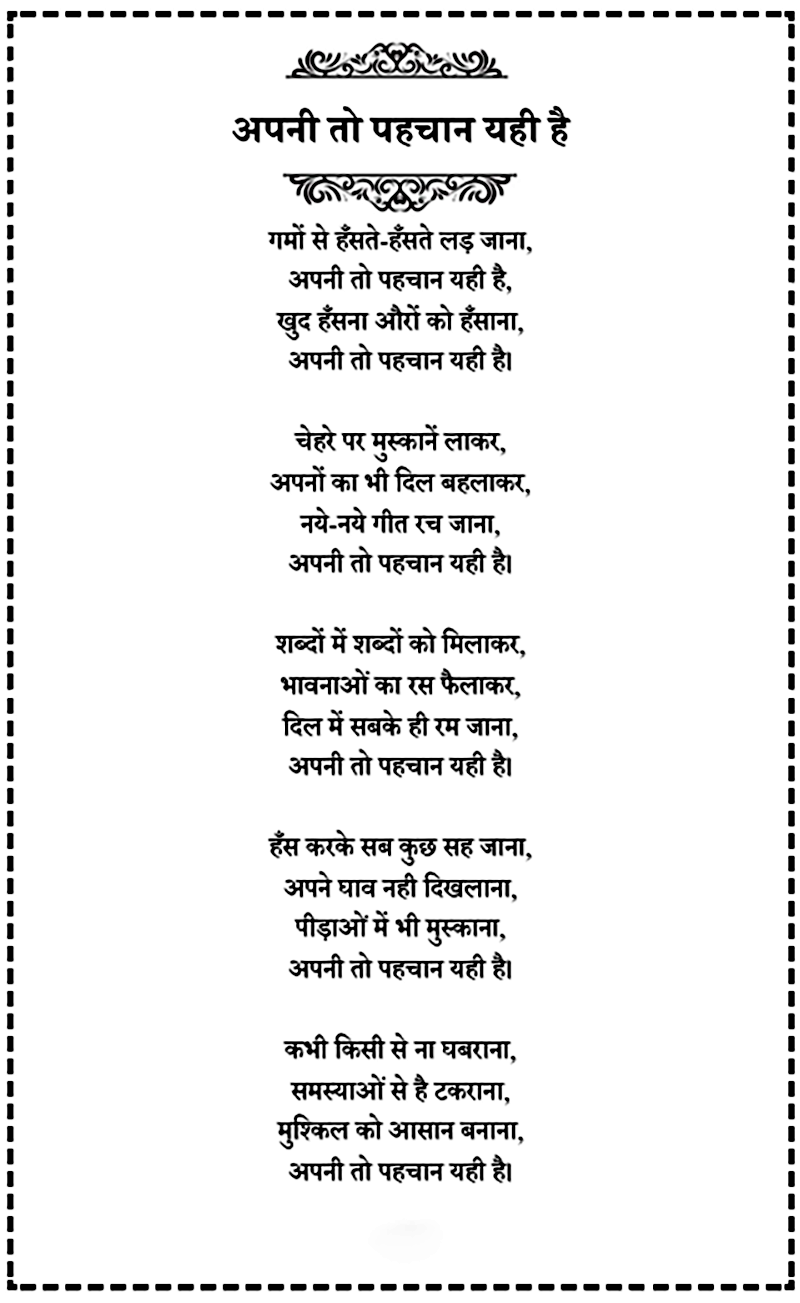 अपनी तो पहचान यही है
गमों से हँसते-हँसते लड़ जाना,
अपनी तो पहचान यही है,
खुद हँसना औरों को हँसाना,
अपनी तो पहचान यही है।
चेहरे पर मुस्कानें लाकर,
अपनों का भी दिल बहलाकर,
नये-नये गीत रच जाना,
अपनी तो पहचान यही है।
शब्दों में शब्दों को मिलाकर,
भावनाओं का रस फैलाकर,
दिल में सबके ही रम जाना,
अपनी तो पहचान यही है।
हँस करके सब कुछ सह जाना,
अपने घाव नही दिखलाना,
पीड़ाओं में भी मुस्काना,
अपनी तो पहचान यही है।
कभी किसी से ना घबराना,
समस्याओं से है टकराना,
मुश्किल को आसान बनाना,
अपनी तो पहचान यही है।